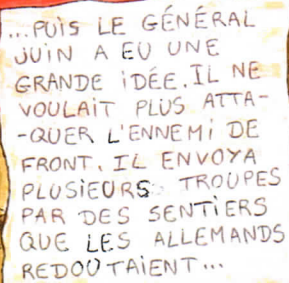 ...PUIS LE GÉNÉRAL
JUIN A EU UNE
GRANDE IDÉE. IL NE
VOULAIT PLUS ATTA-
-QUER L'ENNEMI DE
FRONT. IL ENVOYA
PLUSIEURS TROUPES
PAR DES SENTIERS
QUE LES ALLEMANDS
REDOUTAIENT...